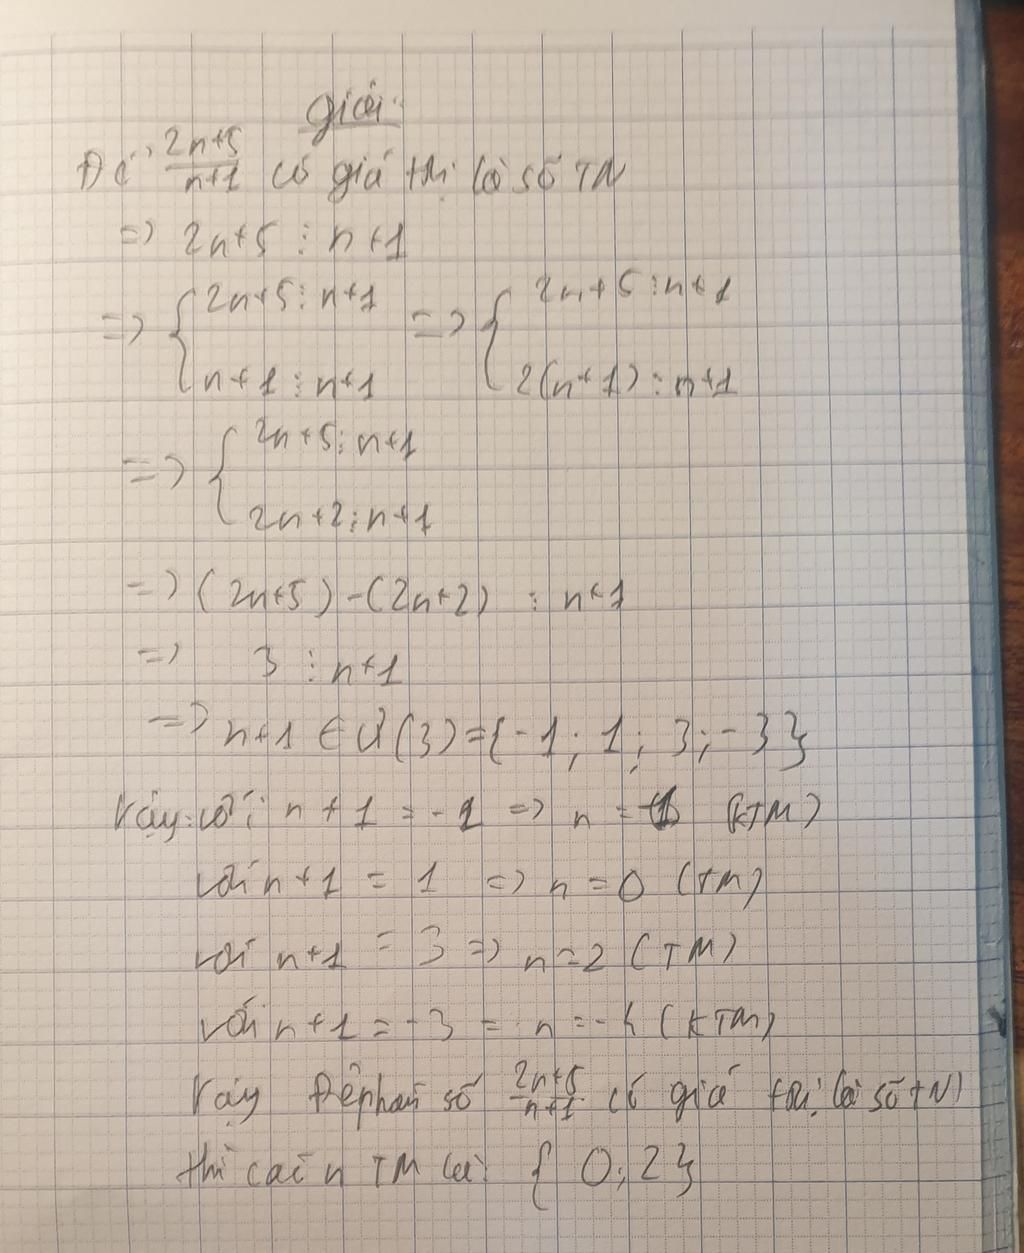 Giải:
Để 2n+5/n+1 có giá trị là số TN
=> 2n+5 ⋮ n+1
=> { 2n+5 ⋮ n+1 => { 2n+5 ⋮ n+1
n+1 ⋮ n+1 2(n+1) ⋮ n+1
=> { 2n+5 ⋮ n+1
2n+2 ⋮ n+1
=> (2n+5) - (2n+2) ⋮ n+1
=> 3 ⋮ n+1
=> n+1 ∈ Ư(3) = {-1; 1; 3; -3}
Vậy: với n+1 = -1 => n = (KTM)
với n+1 = 1 => n = 0 (TM)
với n+1 = 3 => n = 2 (TM)
với n+1 = -3 = n = -4 (KTM)
Vậy Để phân số 2n+5/n+1 có giá trị là số TN
thì các n TM là: {0; 2}